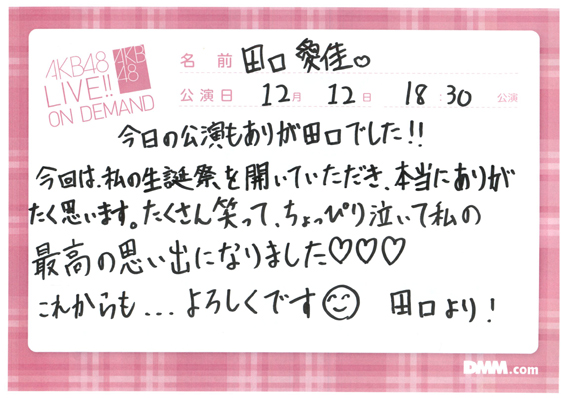 AKB48
LIVE!!
ON DEMAND
AKB
48
名前 田口愛佳♡
公演日 12月 12日 18:30 公演
今日の公演もありが田口でした!!
今回は、私の生誕祭を開いていただき、本当にありが
たく思います。たくさん笑って、ちょっぴり泣いて私の
最高の思い出になりました♡♡♡
これからも...よろしくです☺ 田口より!
DMM.com